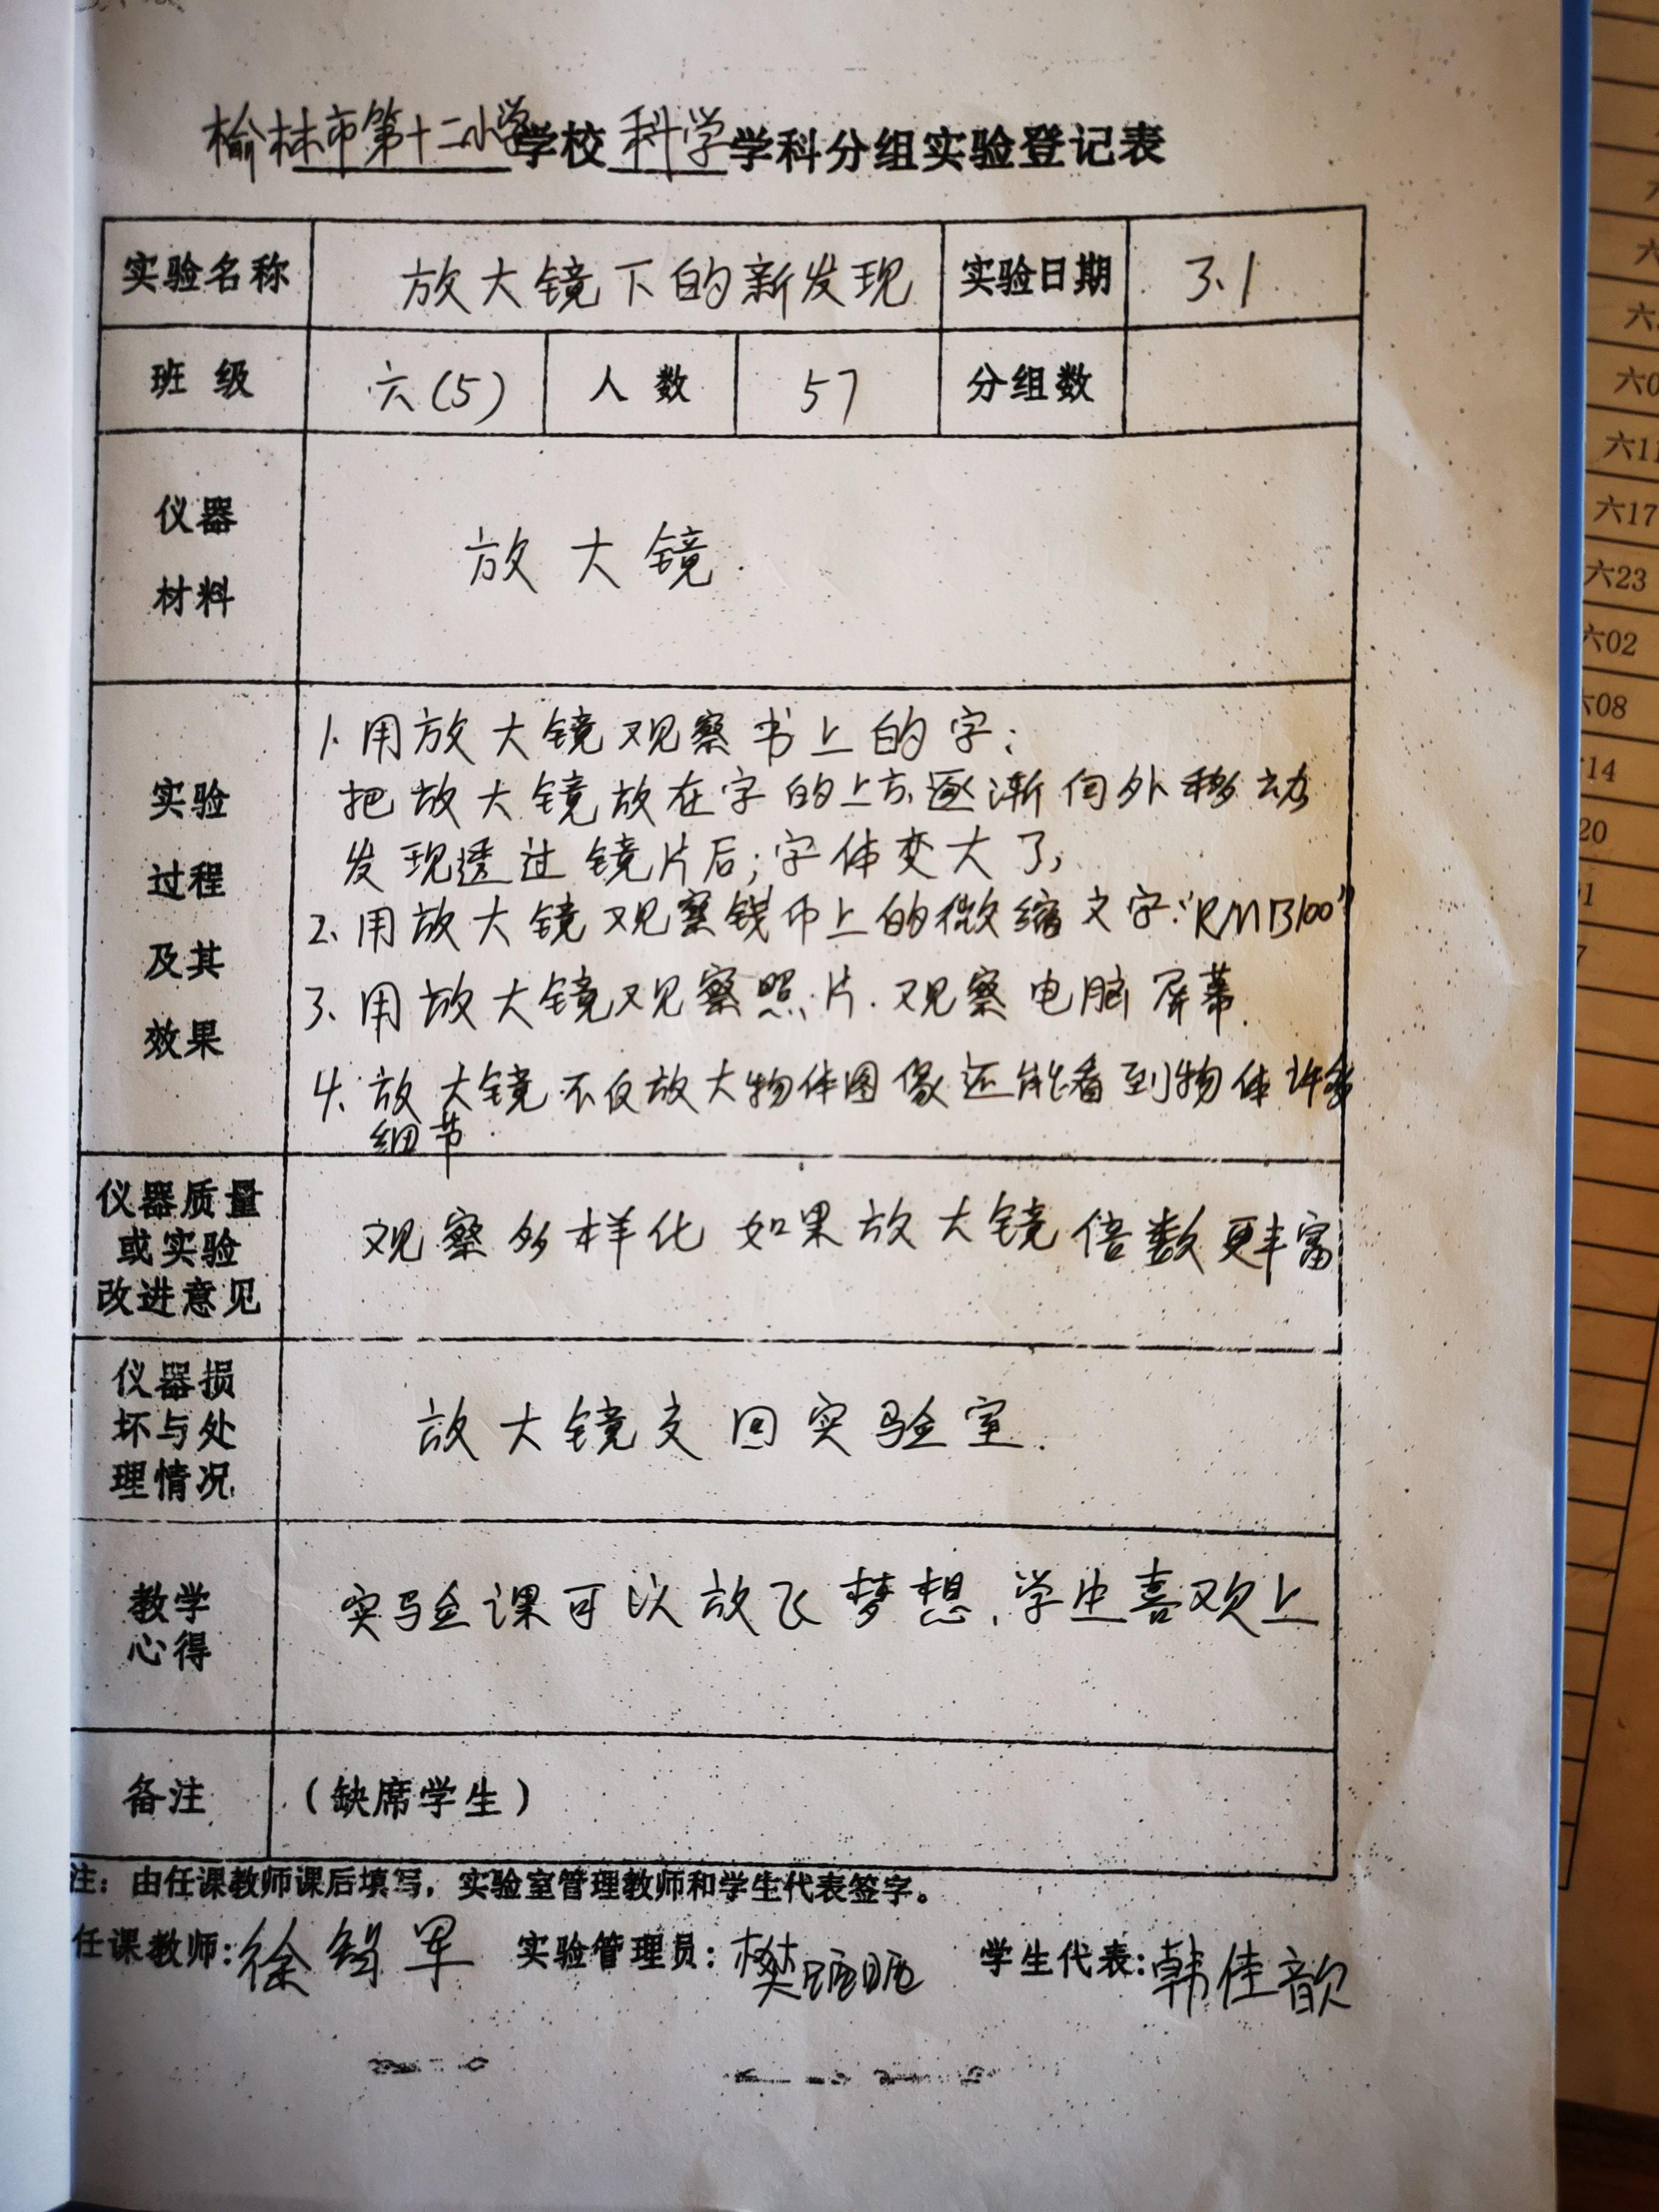 榆林市第十二小学学校科学学科分组实验登记表
实验名称 放大镜下的新发现 实验日期 3.1
班级 六(5) 人数 57 分组数
仪器
材料
放大镜.
实验
过程
及其
效果
1. 用放大镜观察书上的字;
把放大镜放在字的上方,逐渐向外移动
发现透过镜片后;字体变大了,
2、用放大镜观察钱币上的微缩文字:"RMB100"
3、用放大镜观察照片.观察电脑屏幕.
4、放大镜不仅放大物体图像还能看到物体许多
细节.
仪器质量
或实验
改进意见
观察多样化 如果放大镜倍数更丰富
仪器损
坏与处
理情况
放大镜交回实验室.
教学
心得
实验课可以放飞梦想,学生喜欢上
备注 (缺席学生)
注：由任课教师课后填写，实验室管理教师和学生代表签字。
任课教师:徐 军 实验管理员:樊 学生代表:韩佳歆
六
六
六
六0
六11
六17
六23
六02
六08
14
20
01
7